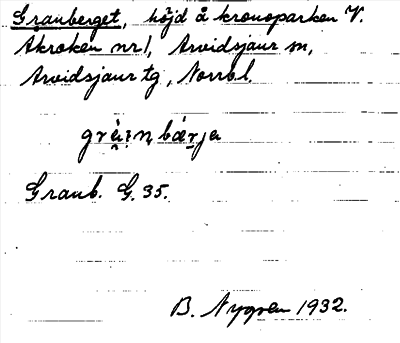 Granberget, höjd å kronoparken V.
Åkroken nr 1, Arvidsjaur sn,
Arvidsjaur tg, Norrb l.
Granb. G. 35.
B. Nygren 1932.